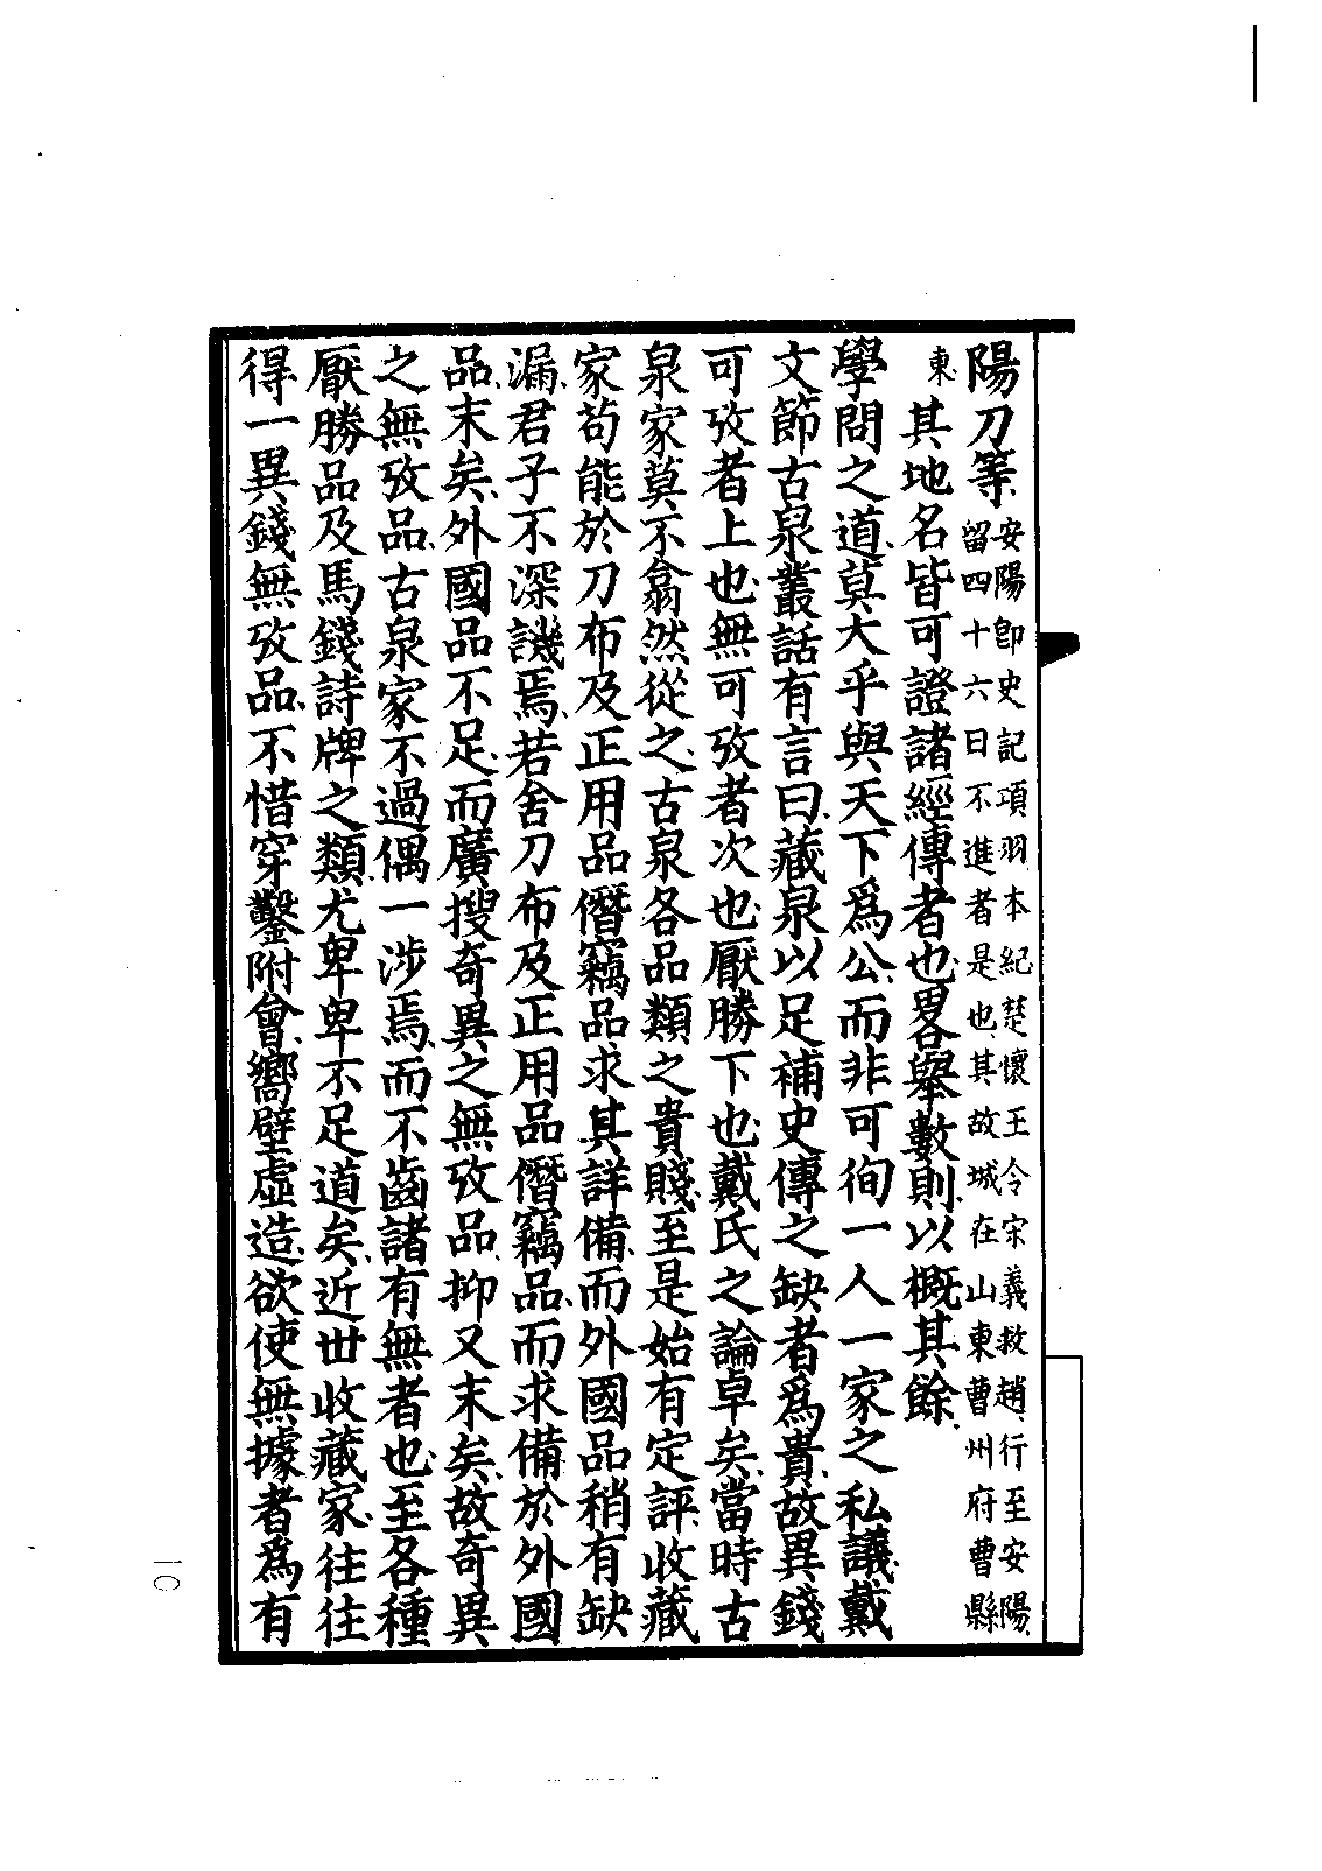 陽刀等、安陽卽史記項羽本紀楚懷王令宋義救趙、行至安陽、留四十六日不進者是也、其故城在山東曹州府曹縣
東、其地名皆可證諸經傳者也、畧舉數則、以概其餘、
學問之道、莫大乎與天下爲公、而非可徇一人一家之私議、戴
文節古泉叢話有言曰、藏泉以足補史傳之缺者爲貴、故異錢
可攷者上也、無可攷者次也、厭勝下也、戴氏之論卓矣、當時古
泉家莫不翕然從之、古泉各品類之貴賤、至是始有定評、收藏
家苟能於刀布及正用品僭竊品、求其詳備、而外國品稍有缺
漏、君子不深譏焉、若舍刀布及正用品僭竊品、而求備於外國
品、末矣、外國品不足、而廣搜奇異之無攷品、抑又末矣、故奇異
之無攷品、古泉家不過偶一涉焉、而不齒諸有無者也、至各種
厭勝品及馬錢詩牌之類、尤卑卑不足道矣、近世收藏家、往往
得一異錢無攷品、不惜穿鑿附會、嚮壁虛造、欲使無據者爲有
一〇